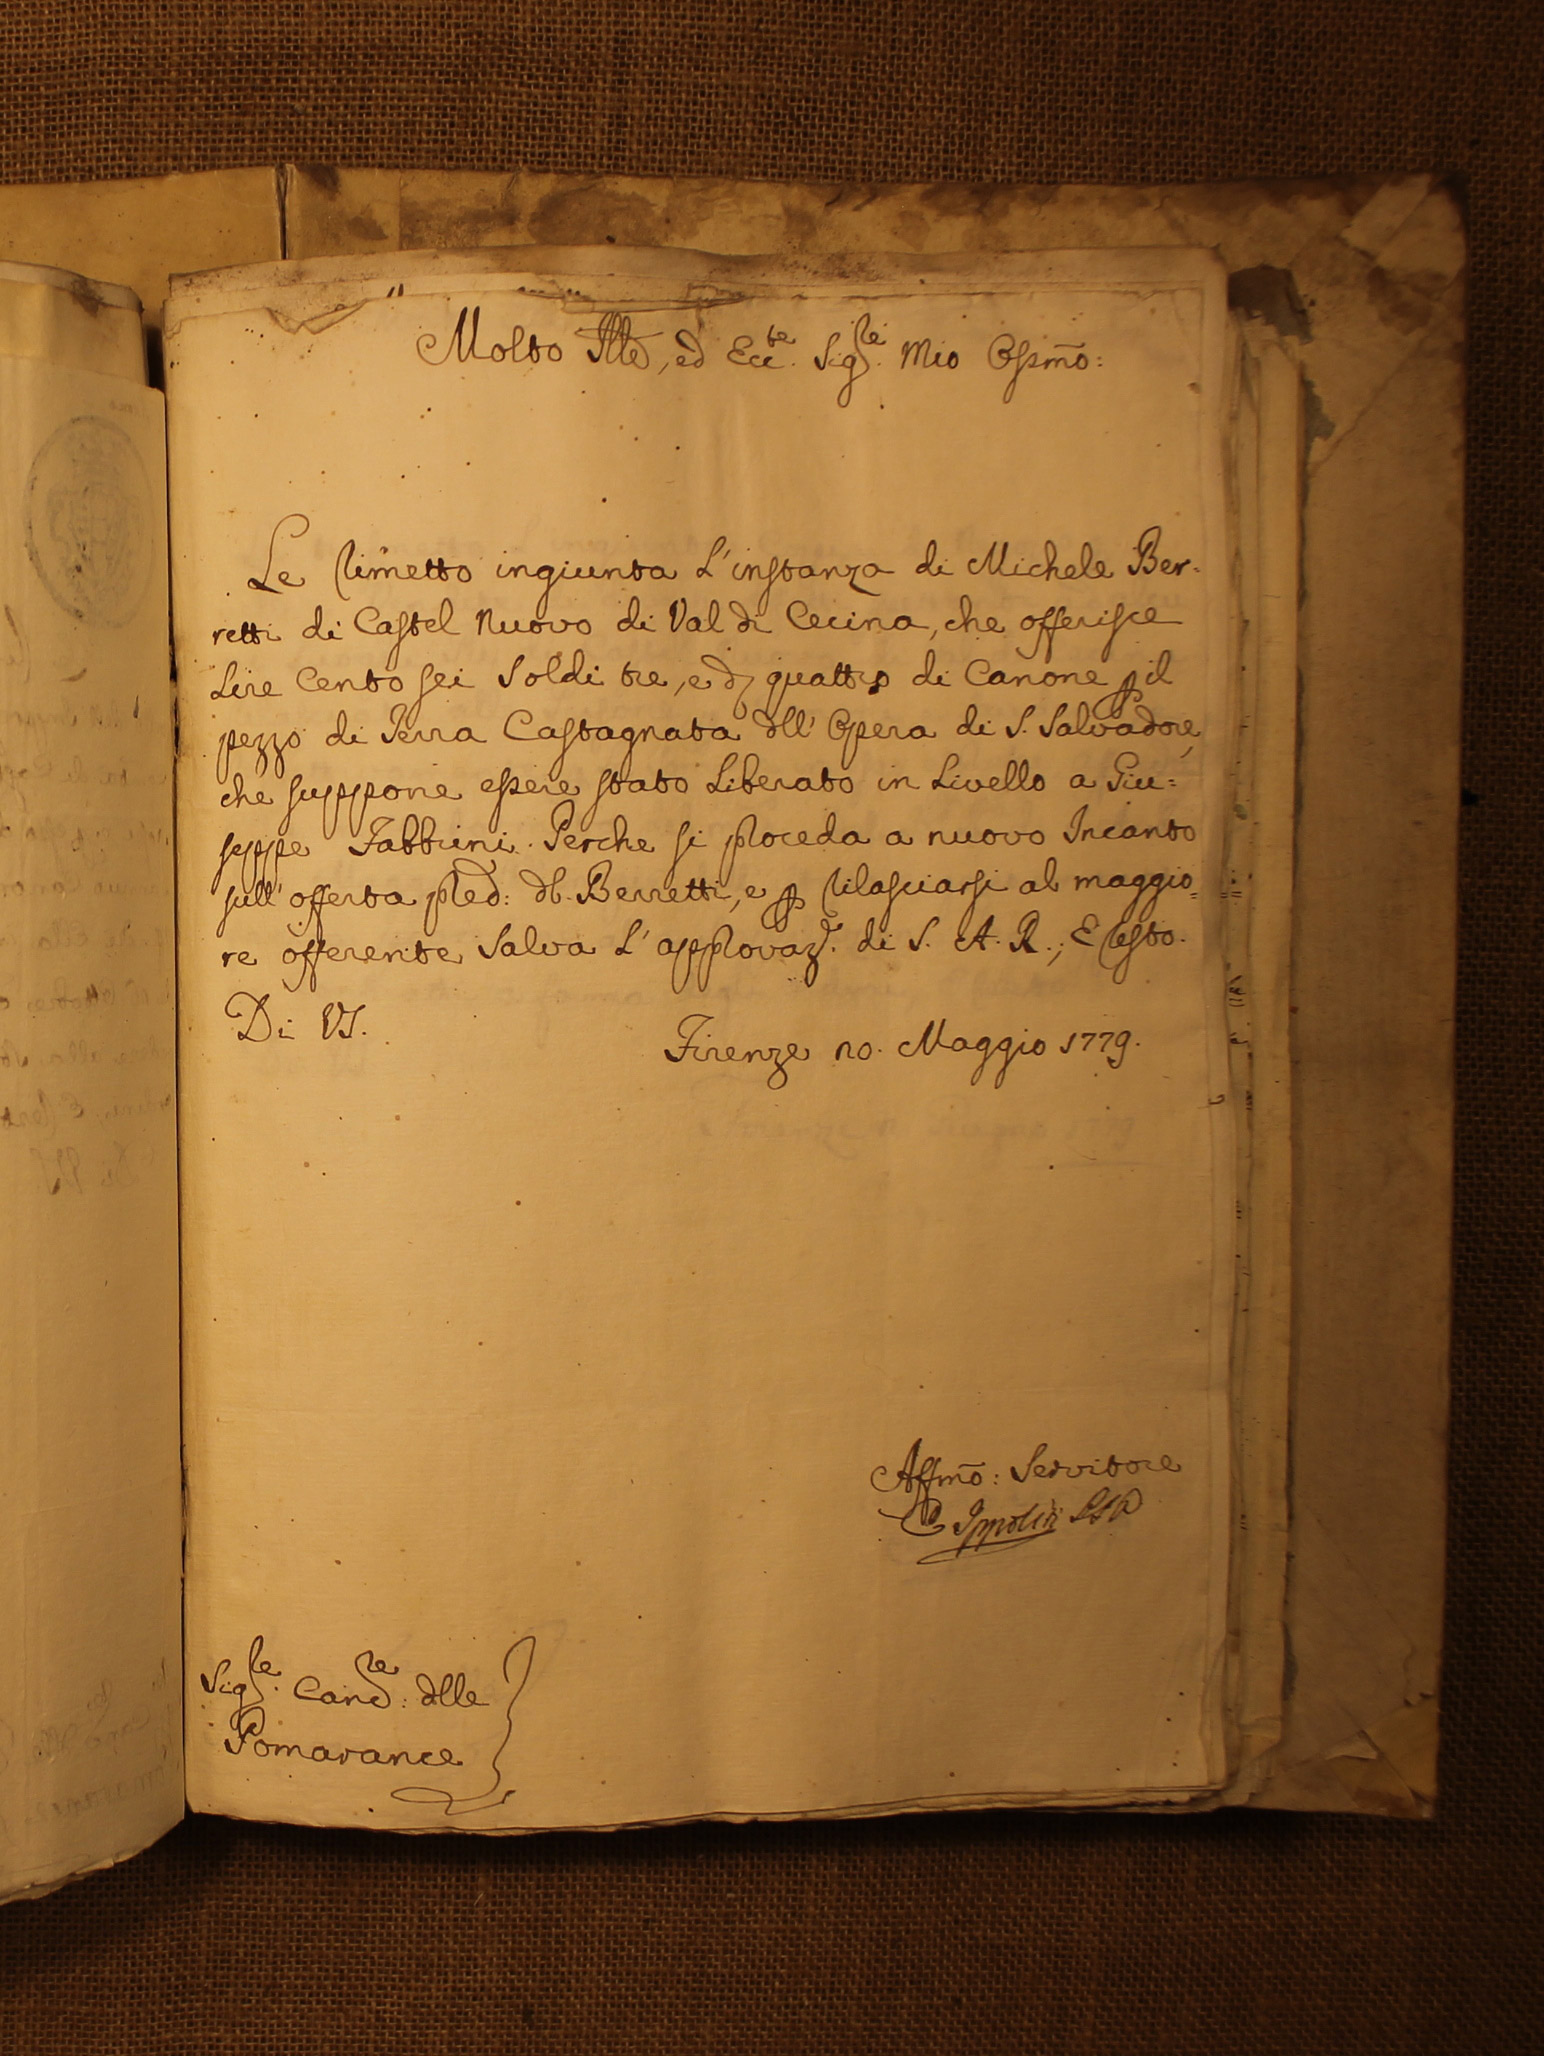 Molto Ill̃e, ed Ecc.te Sig.re Mio Oss̃mo:
Le Rimetto ingiunta L'instanza di Michele Ber-
retti di Castel Nuovo di Val di Cecina, che offerisce
Lire Cento sei Soldi tre, e d. quattro di Canone p il
pezzo di Terra Castagnata dll' Opera di S. Salvadore,
che suppone essere stato Liberato in Livello a Giu=
seppe Fabbrini. Perche si proceda a nuovo Incanto
sull' offerta pred: dl. Berretti, e p rilasciarsi al maggio=
re offerente Salva L'approvaz. di S. A. R., E resto.
Di VS.
Firenze 10. Maggio 1779.
Affm̃o: Servitore
Ippoliti
Sig.re Canc.re: dlle
Pomarance